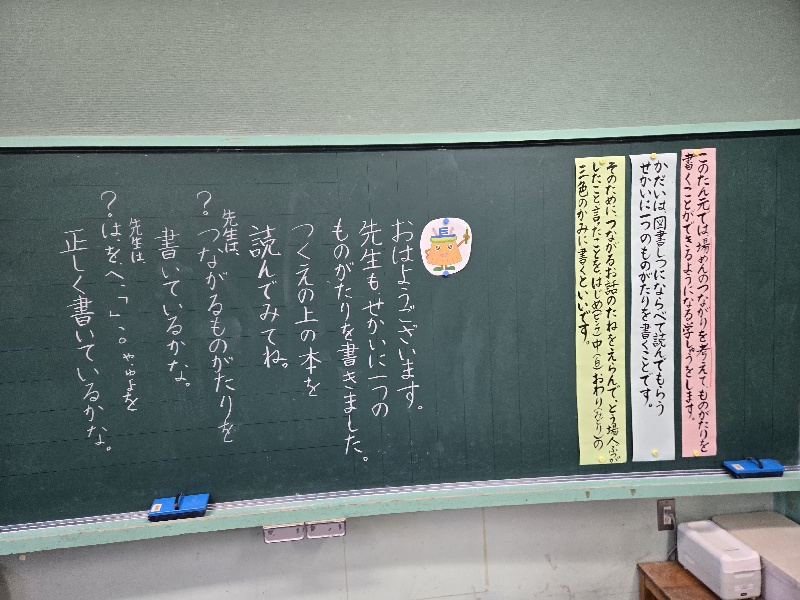 このたん元では、場めんのつながりを考えて、ものがたりを
書くことができるようになる学しゅうをします。
かだいは、図書しつにならべて読んでもらう
せかいに一つのものがたりを書くことです。
そのために、つながるお話のたねをえらんで、とう場人ぶつが
したこと、言ったことを、はじめ(きいろ)中(白)おわり(みどり)の
三色のかみに書くといいです。
おはようございます。
先生もせかいに一つの
ものがたりを書きました。
つくえの上の本を
読んでみてね。
先生は、
?つながるものがたりを
書いているかな。
先生は、
?は、を、へ、「」、。や ゃゅょを
正しく書いているかな。